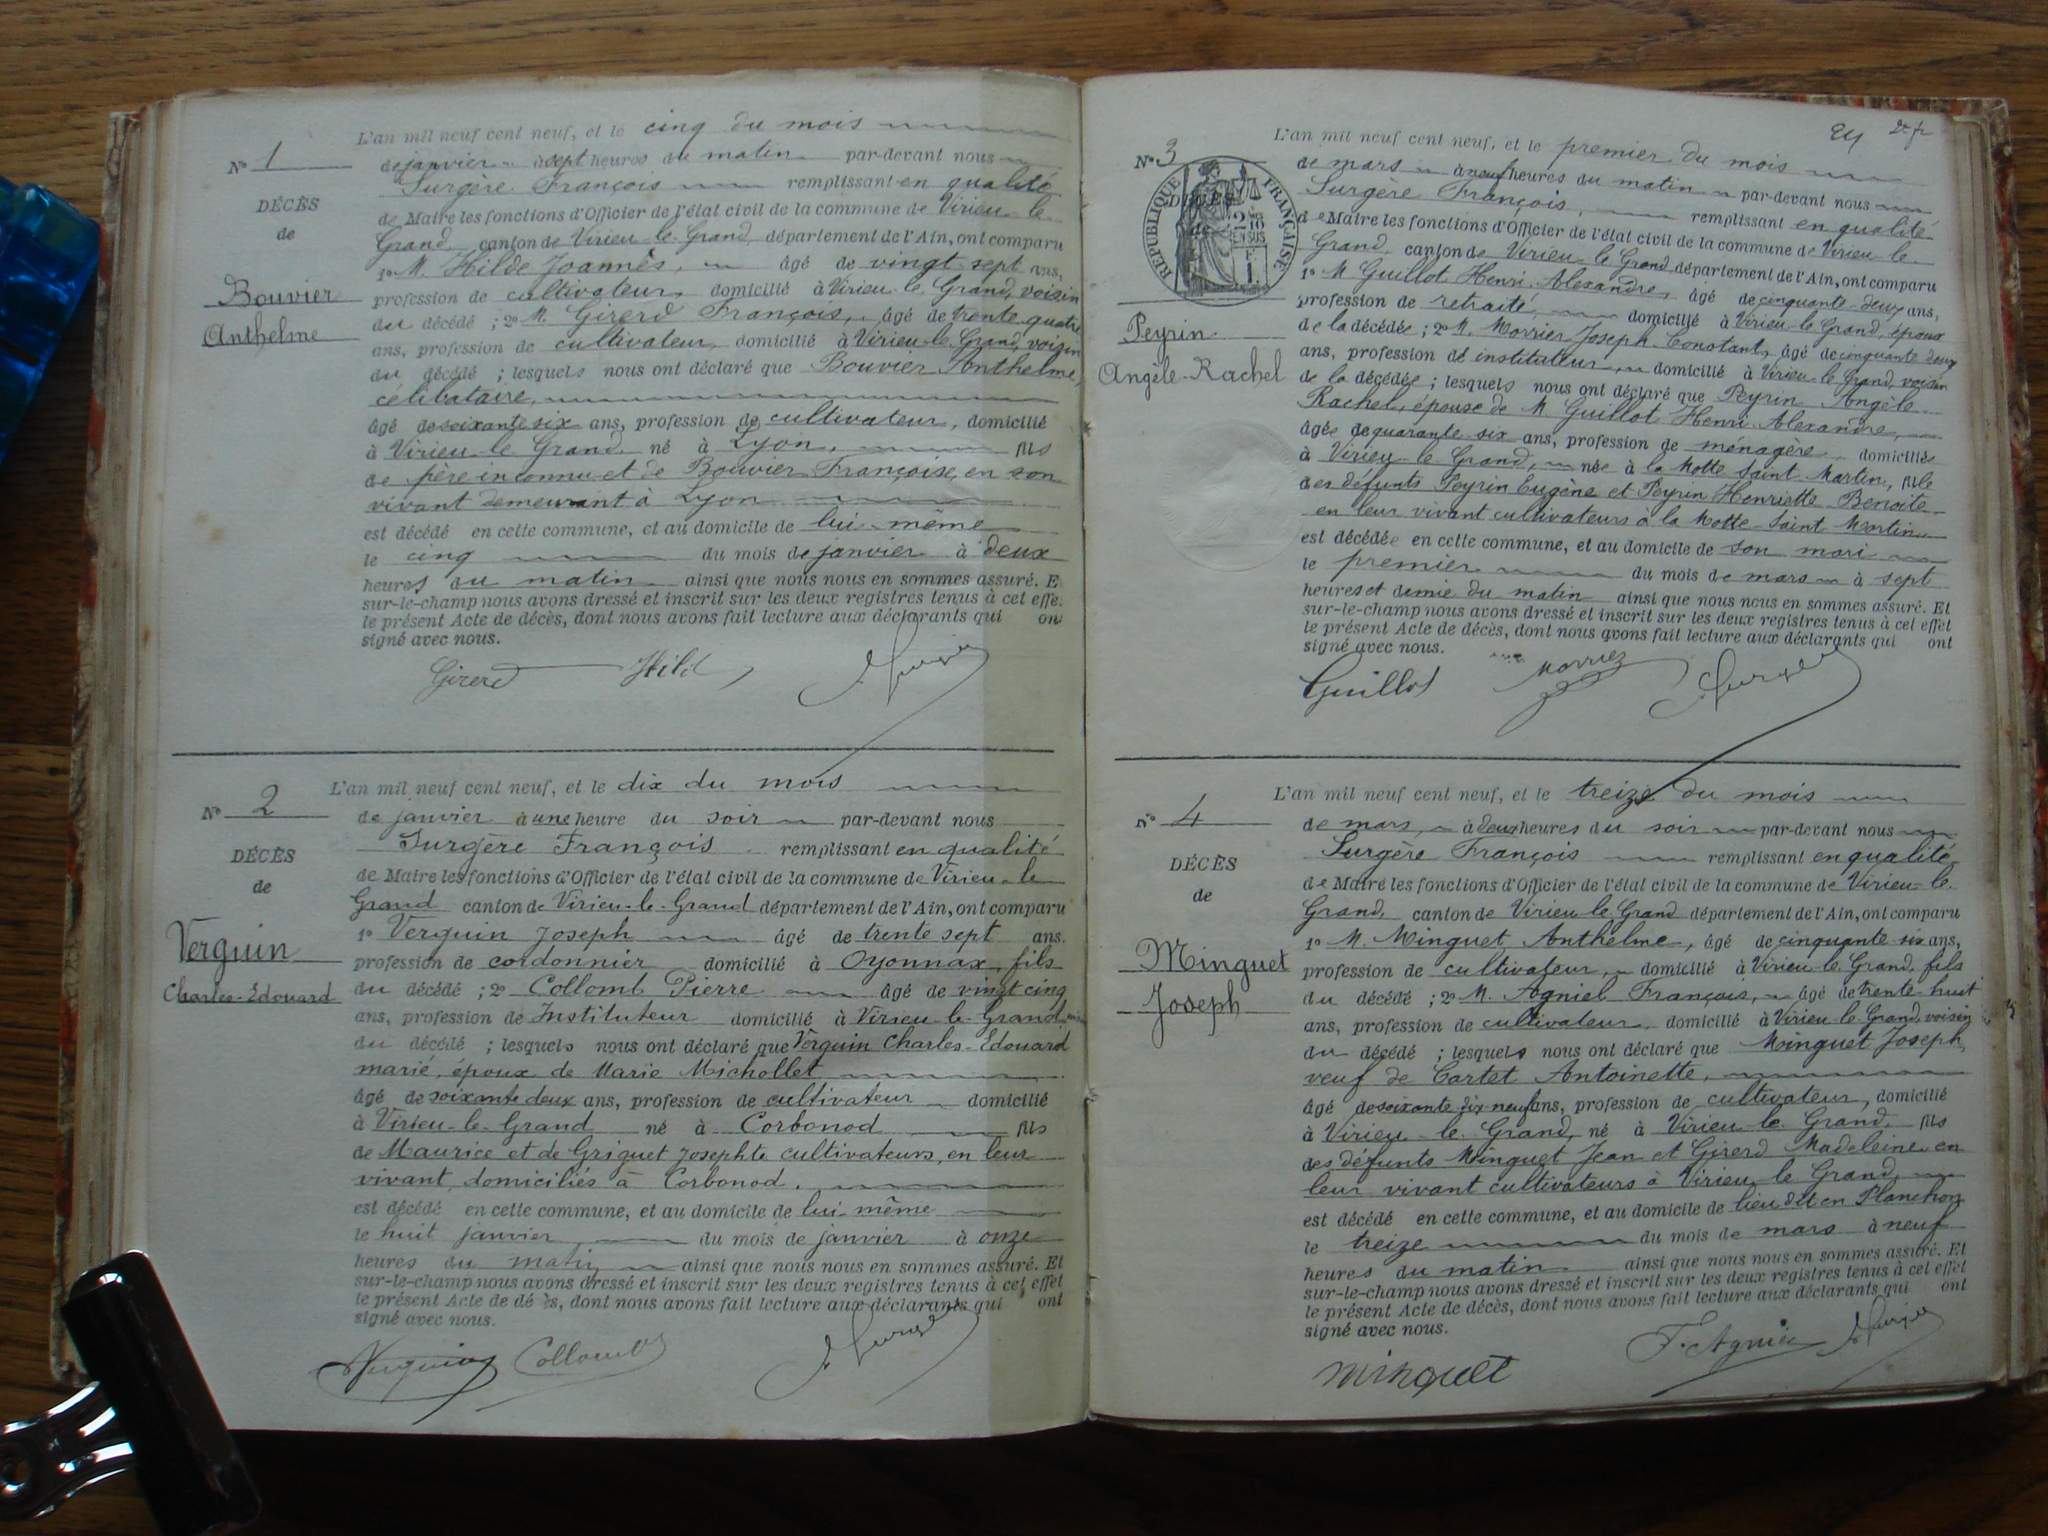 L'an mil neuf cent neuf, et le cinq du mois
No 1
de janvier à sept heures du matin par-devant nous
Surgère François remplissant en qualité
DÉCÈS
de Maire les fonctions d'Officier de l'état civil de la commune de Virieu-le-
de
Grand canton de Virieu-le-Grand, département de l'Ain, ont comparu
1o M. Hilde Joannès, âgé de vingt-sept ans,
Bouvier
profession de cultivateur domicilié à Virieu-le-Grand, voisin
Anthelme
du décédé ; 2o M. Girerd François, âgé de trente-quatre
ans, profession de cultivateur domicilié à Virieu-le-Grand, voisin
du décédé ; lesquels nous ont déclaré que Bouvier Anthelme,
célibataire,
âgé de soixante-six ans, profession de cultivateur, domicilié
à Virieu-le-Grand né à Lyon, fils
de père inconnu et de Bouvier Françoise, en son
vivant demeurant à Lyon
est décédé en cette commune, et au domicile de lui-même
le cinq du mois de janvier à deux
heures du matin ainsi que nous nous en sommes assuré. E
sur-le-champ nous avons dressé et inscrit sur les deux registres tenus à cet effe
le présent Acte de décès, dont nous avons fait lecture aux déclarants qui on
signé avec nous.
Girerd Hild Surgère
L'an mil neuf cent neuf, et le dix du mois
No 2
de janvier à une heure du soir par-devant nous
Surgère François remplissant en qualité
DÉCÈS
de Maire les fonctions d'Officier de l'état civil de la commune de Virieu-le
de
Grand canton de Virieu-le-Grand département de l'Ain, ont comparu
Verguin
1o Verguin Joseph âgé de trente sept ans,
profession de cordonnier domicilié à Oyonnax, fils
Charles-Edouard
du décédé ; 2o Collomb Pierre âgé de vingt cinq
ans, profession de Instituteur domicilié à Virieu-le-Grand
du décédé ; lesquels nous ont déclaré que Verguin Charles-Edouard
marié, époux de Marie Michollet
âgé de soixante deux ans, profession de cultivateur domicilié
à Virieu-le-Grand né à Corbonod fils
de Maurice et de Griguet Josephte cultivateurs, en leur
vivant, domiciliés à Corbonod.
est décédé en cette commune, et au domicile de lui-même
le huit janvier du mois de janvier à onze
heures du matin ainsi que nous nous en sommes assuré. Et
sur-le-champ nous avons dressé et inscrit sur les deux registres tenus à cet effet
le présent Acte de dé ès, dont nous avons fait lecture aux déclarants qui ont
signé avec nous.
Verguin Collomb Surgère
24
L'an mil neuf cent neuf, et le premier du mois
No 3
de mars à neuf heures du matin par-devant nous
Surgère François, remplissant en qualité
RÉPUBLIQUE FRANÇAISE
DÉCÈS
de
de Maire les fonctions d'Officier de l'état civil de la commune de Virieu-le-
Grand canton de Virieu-le-Grand département de l'Ain, ont comparu
1o M Guillot Henri Alexandre, âgé de cinquante-deux ans,
Peyrin
profession de retraité, domicilié à Virieu-le-Grand, époux
de la décédée ; 2o M. Morrier Joseph Constant, âgé de cinquante deux
Angèle-Rachel
ans, profession de instituteur, domicilié à Virieu-le-Grand, voisin
de la décédée ; lesquels nous ont déclaré que Peyrin Angèle
Rachel, épouse de M Guillot Henri Alexandre,
âgée de quarante-six ans, profession de ménagère domiciliée
à Virieu-le-Grand, née à la Motte Saint Martin, fille
des défunts Peyrin Eugène et Peyrin Henriette Benoîte
en leur vivant cultivateurs à la Motte-Saint Martin
est décédée en cette commune, et au domicile de son mari
le premier du mois de mars à sept
heures et demie du matin ainsi que nous nous en sommes assuré. Et
sur-le-champ nous avons dressé et inscrit sur les deux registres tenus à cet effet
le présent Acte de décès, dont nous avons fait lecture aux déclarants qui ont
signé avec nous.
Guillot Surgère
L'an mil neuf cent neuf, et le treize du mois
No 4
de mars, à deux heures du soir par-devant nous
Surgère François remplissant en qualité
DÉCÈS
de Maire les fonctions d'Officier de l'état civil de la commune de Virieu-le-
de
Grand, canton de Virieu-le-Grand département de l'Ain, ont comparu
1o M. Minguet Anthelme, âgé de cinquante-six ans,
Minguet
profession de cultivateur, domicilié à Virieu-le-Grand, fils
Joseph
du décédé ; 2o M. Agniel François, âgé de trente-huit
ans, profession de cultivateur, domicilié à Virieu-le-Grand, voisin
du décédé ; lesquels nous ont déclaré que Minguet Joseph,
veuf de Cartet Antoinette,
âgé de soixante dix-neuf ans, profession de cultivateur, domicilié
à Virieu-le-Grand, né à Virieu-le-Grand fils
des défunts Minguet Jean et Girerd Madeleine en
leur vivant cultivateurs à Virieu-le-Grand
est décédé en cette commune, et au domicile de lieu dit en Planchon
le treize du mois de mars à neuf
heures du matin ainsi que nous nous en sommes assuré. Et
sur-le-champ nous avons dressé et inscrit sur les deux registres tenus à cet effet
le présent Acte de décès, dont nous avons fait lecture aux déclarants qui ont
signé avec nous.
F. Agniel Surgère
minguet